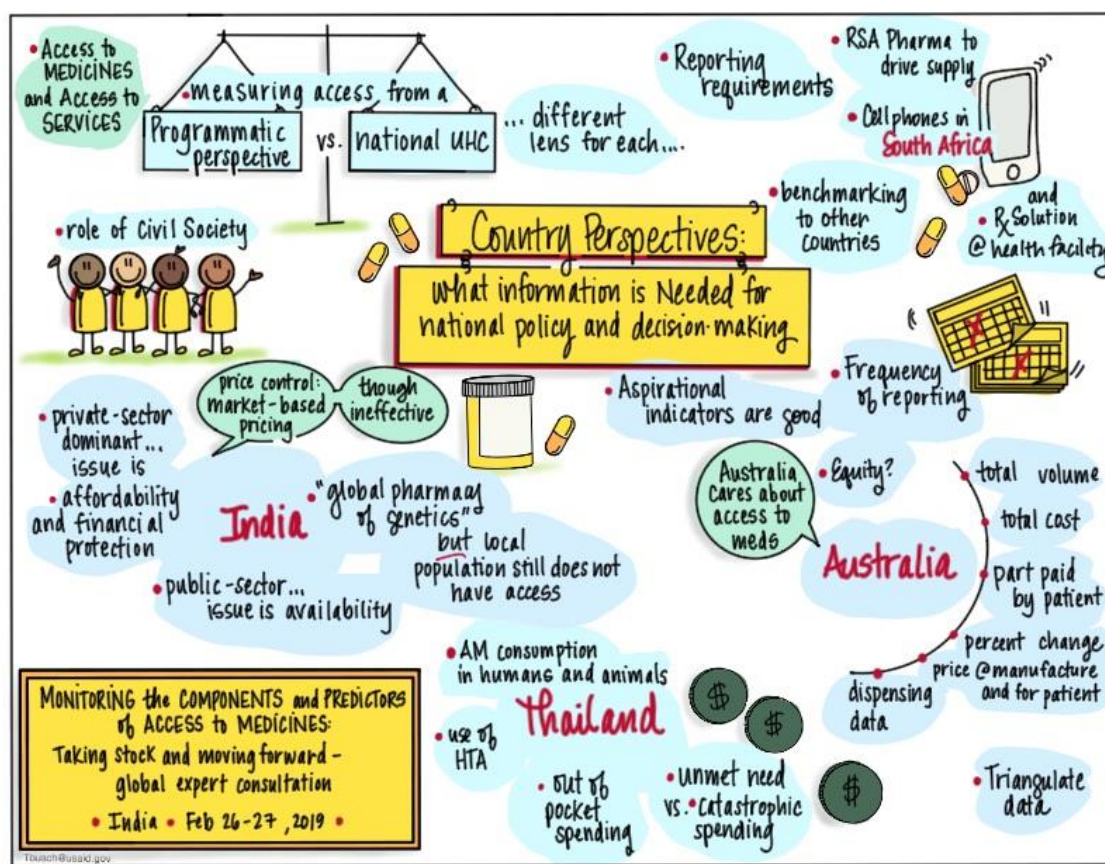 • Access to
MEDICINES
and Access to
SERVICES
• measuring access from a
Programmatic
perspective
vs.
national UHC
... different
lens for each...
• Reporting
requirements
• RSA Pharma to
drive supply
• Cellphones in
South Africa
and
• Rx Solution
@ health facility
• benchmarking
to other
countries
• role of Civil Society
Country Perspectives:
what information is Needed for
national policy and decision-making
price control:
market-based
pricing
though
ineffective
• private-sector
dominant...
issue is
• affordability
and financial
protection
India
• "global pharmacy
of genetics"
but local
population still does not
have access
• public-sector...
issue is availability
• Aspirational
indicators are good
• Frequency
of reporting
Australia
cares about
access to
meds
• Equity?
Australia
• total volume
• total cost
• part paid
by patient
• percent change
price @ manufacture
and for patient
• dispensing
data
• Triangulate
data
• AM consumption
in humans and animals
Thailand
• use of
HTA
• out of
pocket
spending
• unmet need
vs. • catastrophic
spending
$
$
$
MONITORING the COMPONENTS and PREDICTORS
of ACCESS to MEDICINES:
Taking stock and moving forward -
global expert consultation
• India • Feb 26-27, 2019 •
Tbusch@usaid.gov